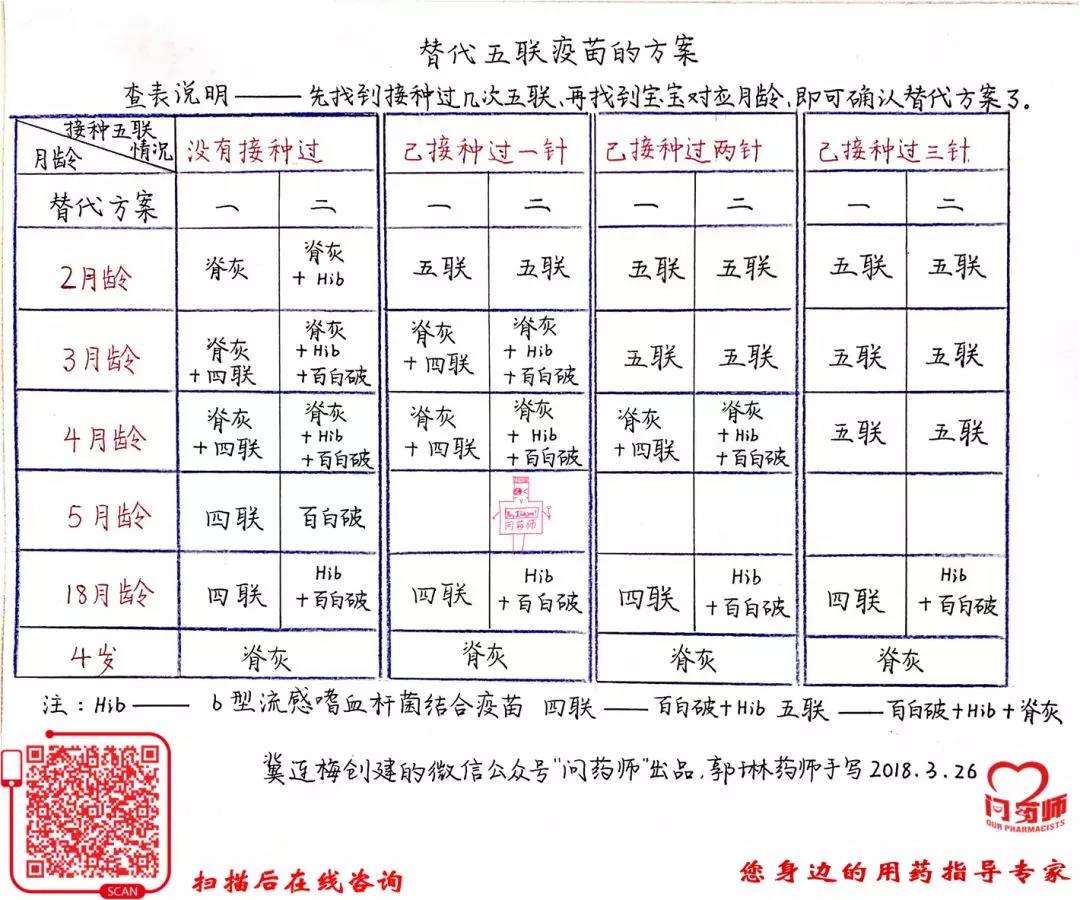 替代五联疫苗的方案
查表说明——先找到接种过几次五联、再找到宝宝对应月龄、即可确认替代方案了。
接种五联情况 月龄 没有接种过 已接种过一针 已接种过两针 已接种过三针
替代方案 一 二 一 二 一 二 一 二
2月龄 脊灰 脊灰+Hib 五联 五联 五联 五联 五联 五联
3月龄 脊灰+四联 脊灰+Hib+百白破 脊灰+四联 脊灰+Hib+百白破 五联 五联 五联 五联
4月龄 脊灰+四联 脊灰+Hib+百白破 脊灰+四联 脊灰+Hib+百白破 脊灰+四联 脊灰+Hib+百白破 五联 五联
5月龄 四联 百白破
问药师
18月龄 四联 Hib+百白破 四联 Hib+百白破 四联 Hib+百白破 四联 Hib+百白破
4岁 脊灰 脊灰 脊灰 脊灰
注:Hib—— b型流感嗜血杆菌结合疫苗 四联——百白破+Hib 五联——百白破+Hib+脊灰
冀连梅创建的微信公众号"问药师"出品,郭琳药师手写2018.3.26
问药师
OUR PHARMACISTS
SCAN
扫描后在线咨询
您身边的用药指导专家